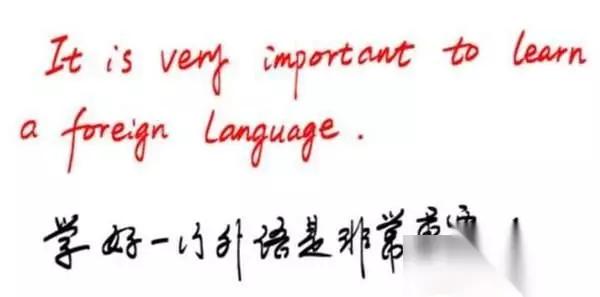 It is very important to learn
a foreign Language.
学好一门外语是非常